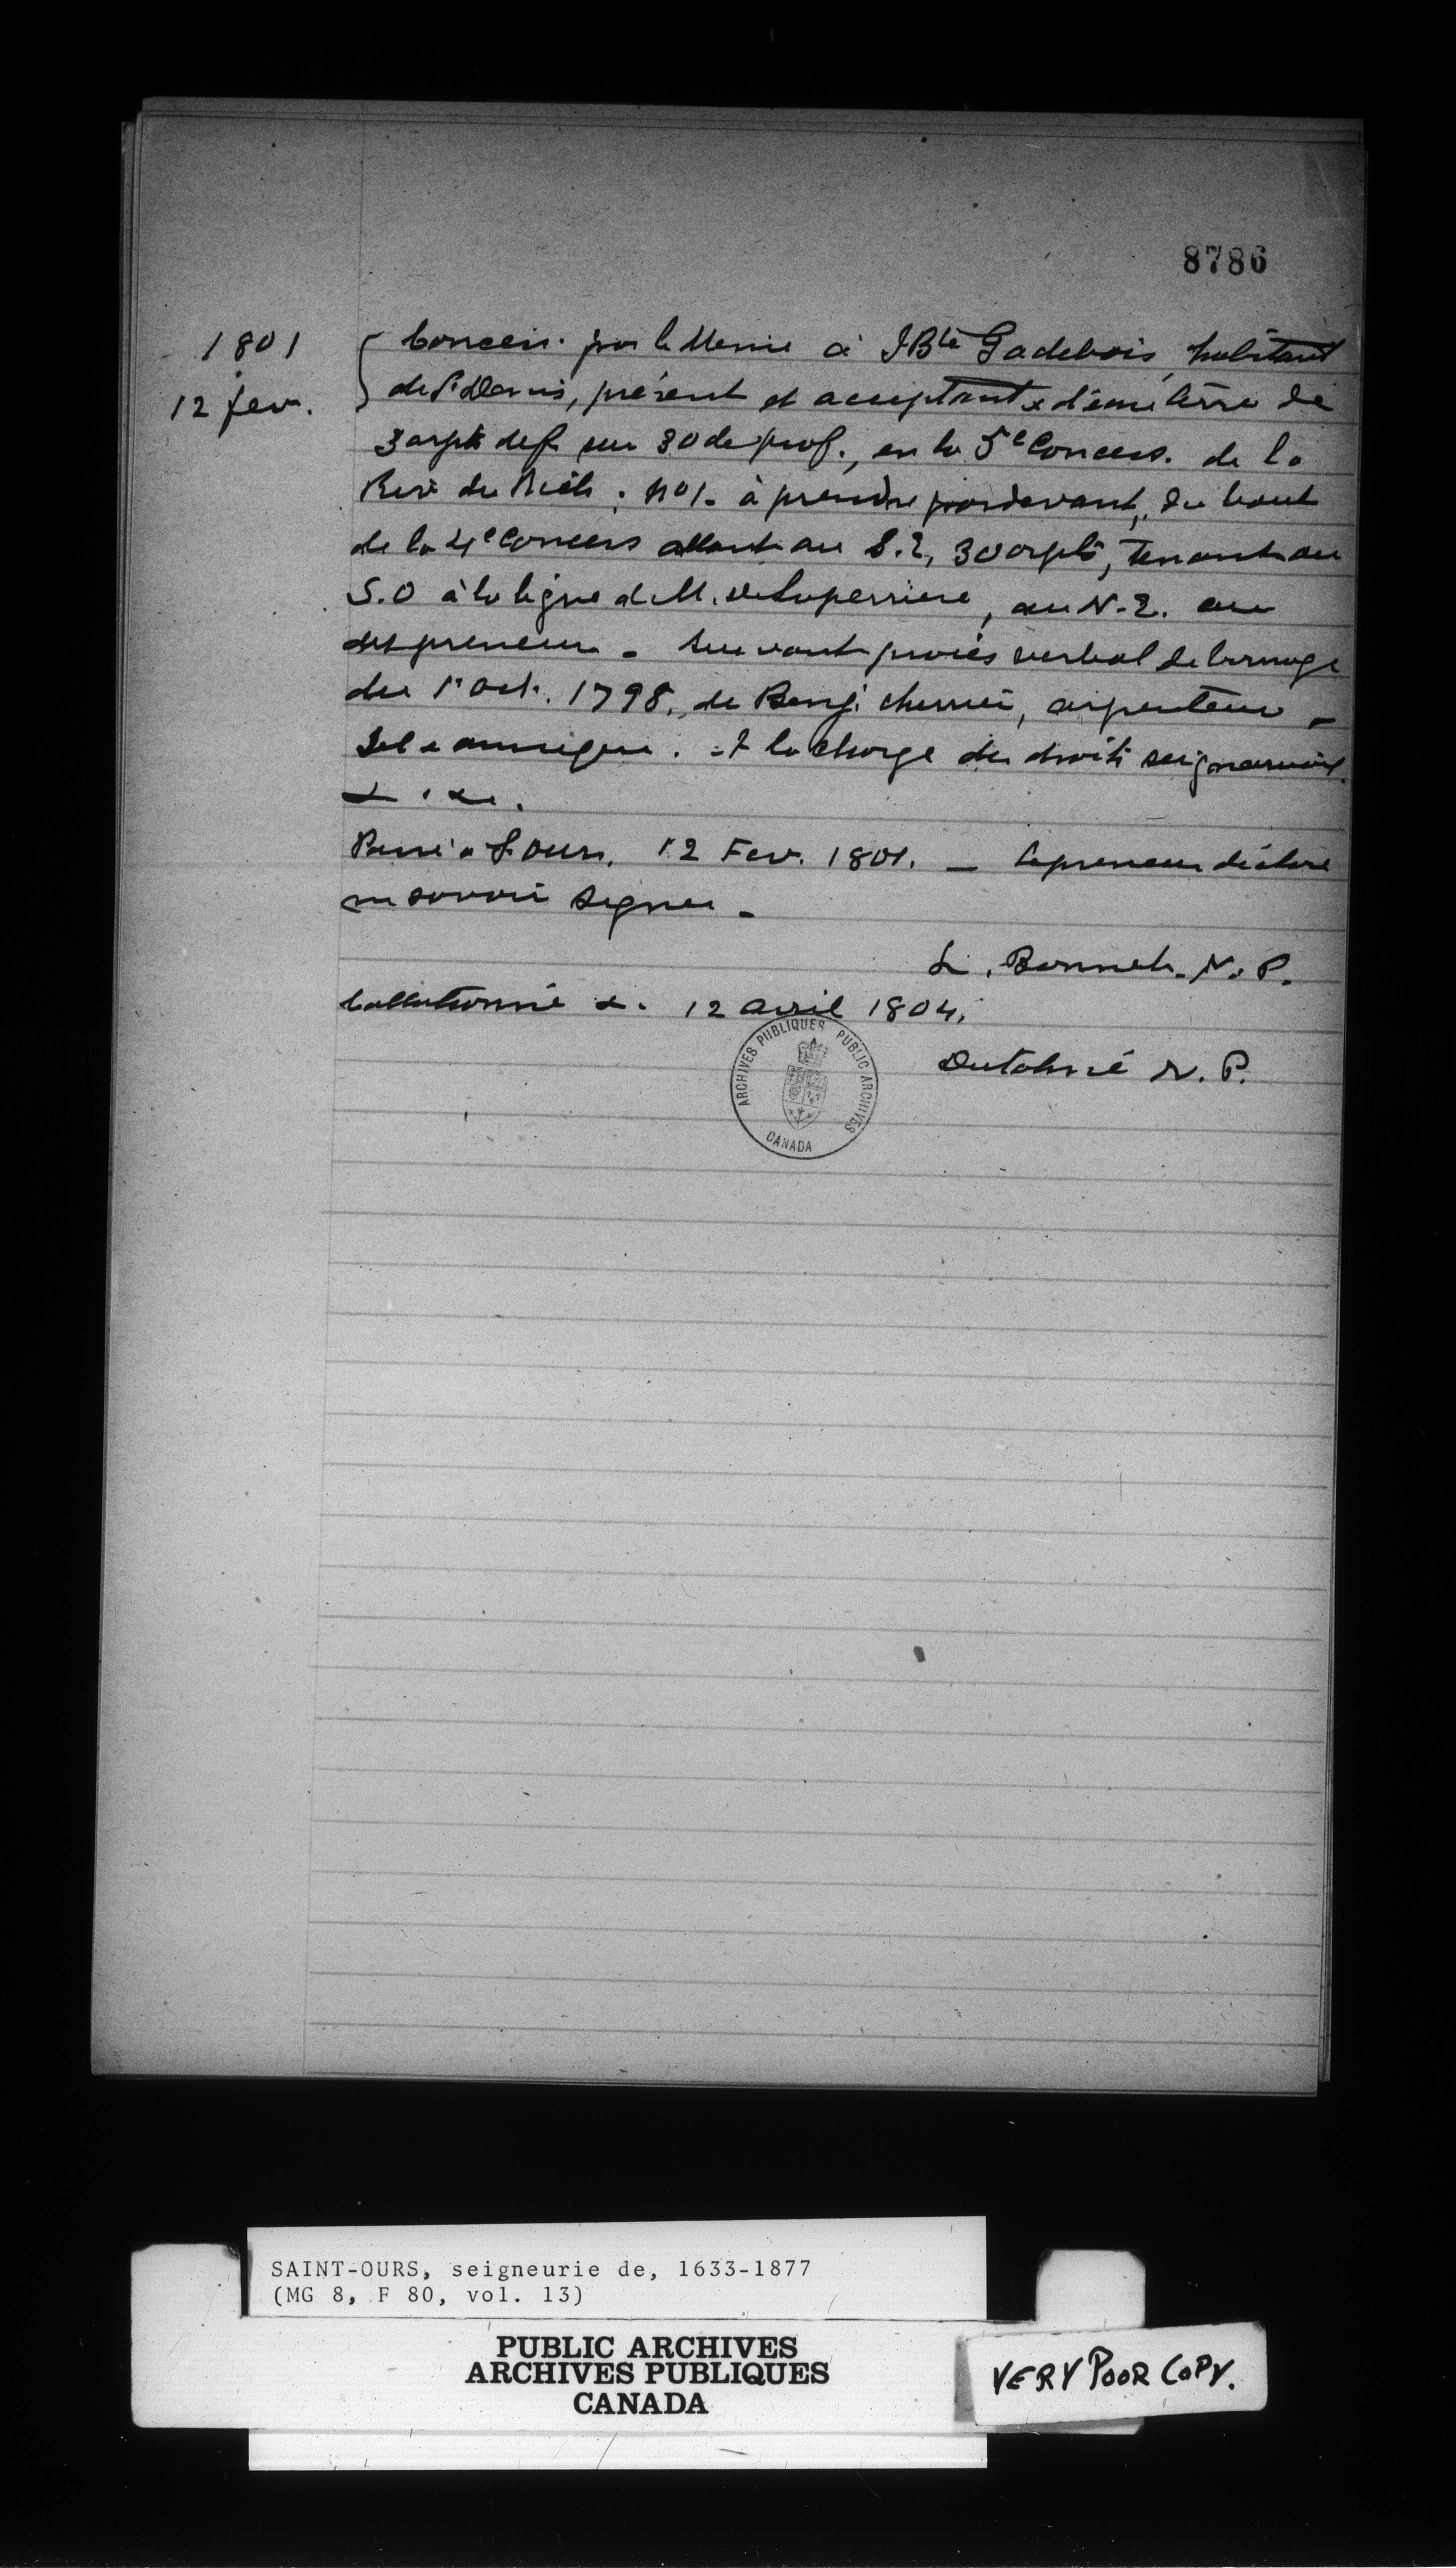 8786
1801
12 fev.
Concess. par le Meme à J Bte Gadebois, habitant
de St Denis, présent et acceptant & d'une terre de
3 arpts de f. sur 30 de prof., en la 5e Concess. de la
Rivre du Rich. No 1. à prendre pardevant, du bout
de la 4e Concess allant au S.E, 30 arpts, tenant au
S.O à la ligne de M. de Laperriere, au N.E. au
dt preneur _ Suivant procès verbal de bornage
du 1r Oct. 1798, de Benj. Cherrier, arpenteur _
Tel & ainsi que. A la charge des droits seigneuriaux
& . &.
Passé à St Ours, 12 Fev. 1801. _ Le preneur déclare
ne savoir signer _
L. Bonnet. N. P.
Collationné &. 12 avril 1804.
N. P.
ARCHIVES PUBLIQUES PUBLIC ARCHIVES
CANADA
SAINT-OURS, seigneurie de, 1633-1877
(MG 8, F 80, vol. 13)
PUBLIC ARCHIVES
ARCHIVES PUBLIQUES
CANADA
VERY POOR COPY.